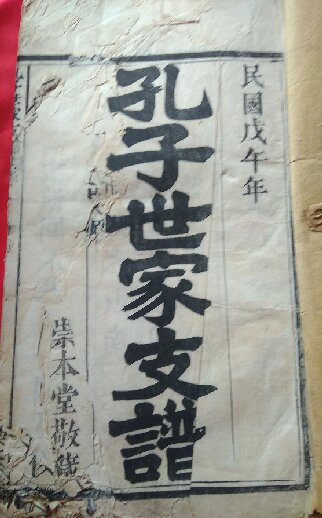 民國戊午年
孔子世家支譜
崇本堂敬